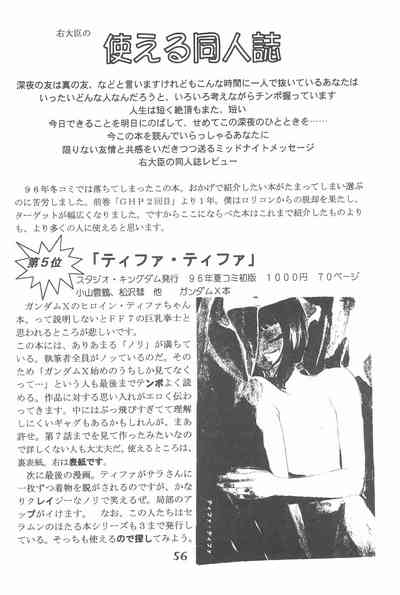 右大臣の
使える同人誌
深夜の友は真の友、などと言いますけれどもこんな時間に一人で抜いているあなたは
いったいどんな人なんだろうと、いろいろ考えながらチンポ握っています
人生は短く絶頂もまた、短い
今日できることを明日にのばして、せめてこの深夜のひとときを……
今この本を読んでいらっしゃるあなたに
限りない友情と共感をいだきつつ送るミッドナイトメッセージ
右大臣の同人誌レビュー
９６年冬コミでは落ちてしまったこの本。おかげで紹介したい本がたまってしまい選ぶ
のに苦労しました。前巻「ＧＨＰ２回目」より１年。僕はロリコンからの脱却を果たし、
ターゲットが幅広くなりました。ですからここにならべた本はこれまで紹介したものより
も、より多くの人に使えると思います。
第５位
「ティファ・ティファ」
スタジオ・キングダム発行　９６年夏コミ初版　１０００円　７０ページ
小山雲鶴、松沢彗　他　ガンダムＸ本
ガンダムＸのヒロイン・ティファちゃん
本、って説明しないとＦＦ７の巨乳拳士と
思われるところが悲しいです。
この本には、ありあまる「ノリ」が満ちて
いる。執筆者全員がノッているのだ。その
ため「ガンダムＸ始めのうちしか見てなく
って…」という人も最後までテンポよく読
める。作品に対する思い入れがエロく伝わ
ってきます。中にはぶっ飛びすぎてて理解
しにくいギャグもあるかもしれんが、まあ
許せ。第７話までを見て作ったみたいなの
で詳しくない人も大丈夫だ。使えるところは、
裏表紙。右は表紙です。
次に最後の漫画。ティファがサラさんに
一枚ずつ着物を脱がされるのですが、かな
りクレイジーなノリで笑えるぜ。局部のア
ップがイけます。　なお、この人たちはセ
ラムンのほたる本シリーズも３まで発行し
ている。そっちも使えるので探してみよう。
ティファ・ティファ
56